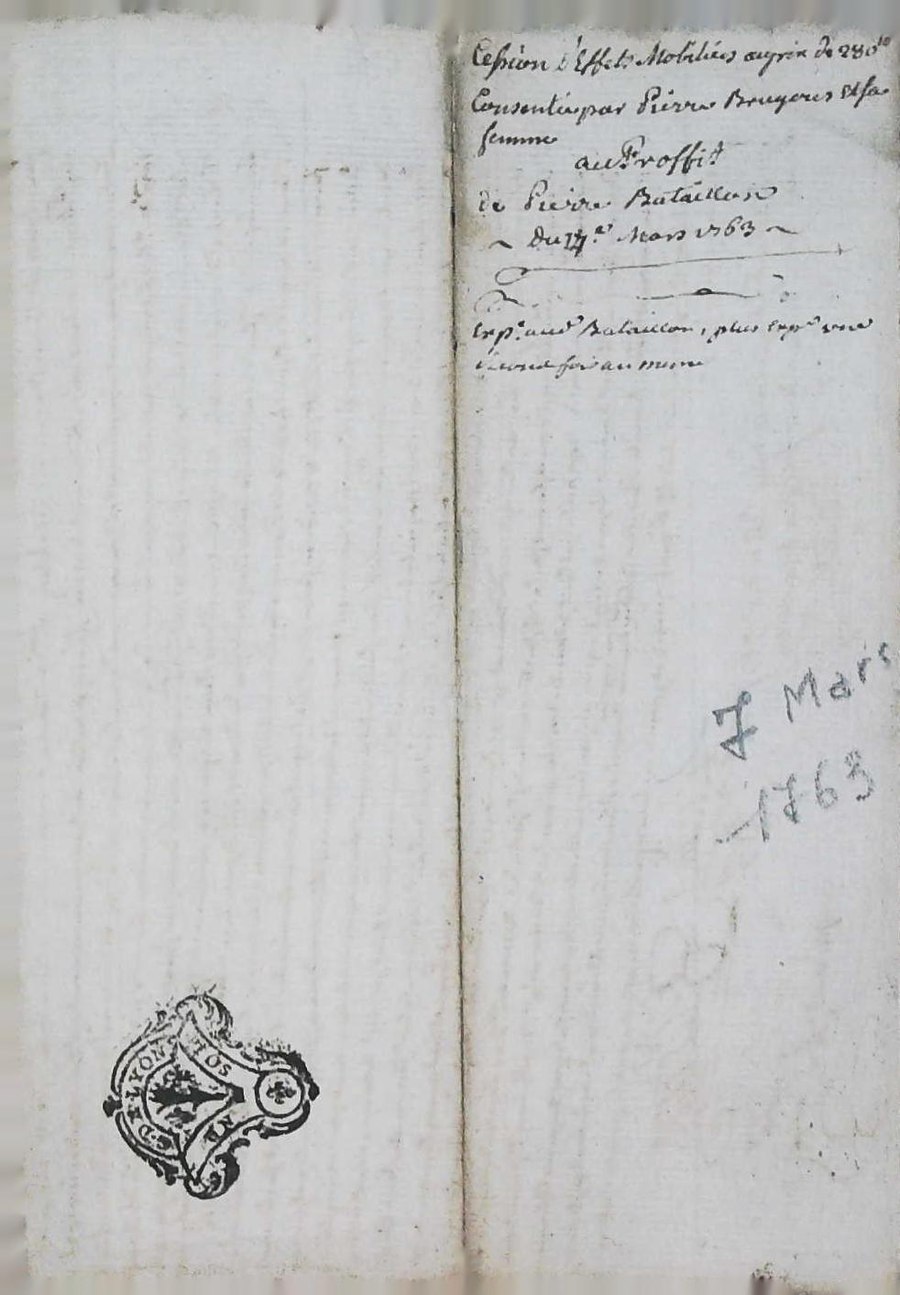 Cession d'Effets Mobiliers au prix de 280 ₶
Consentie par Pierre Bruyeres Et sa
femme
au Proffit
de Pierre Bataillon
~ Du 7e Mars 1763 ~
Exp. aud. Bataillon, plus Exp. une
seconde fois au meme
7 Mars
1763
DE LYON